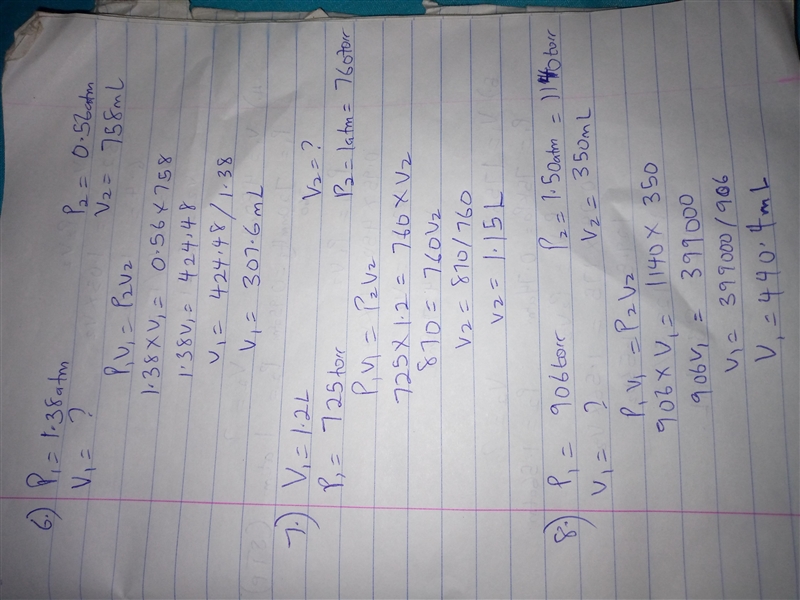 6.) P₁ = 1.38atm P₂ = 0.56atm
V₁ = ? V₂ = 758mL
P₁V₁ = P₂V₂
1.38 × V₁ = 0.56 × 758
1.38V₁ = 424.48
V₁ = 424.48/1.38
V₁ = 307.6mL
7.) V₁ = 1.2L V₂ = ?
P₁ = 725torr P₂ = 1atm = 760torr
P₁V₁ = P₂V₂
725 × 1.2 = 760 × V₂
870 = 760V₂
V₂ = 870/760
V₂ = 1.15L
8.) P₁ = 906torr P₂ = 1.50atm = 1140torr
V₁ = ? V₂ = 350mL
P₁V₁ = P₂V₂
906 × V₁ = 1140 × 350
906V₁ = 399000
V₁ = 399000/906
V₁ = 440.4mL